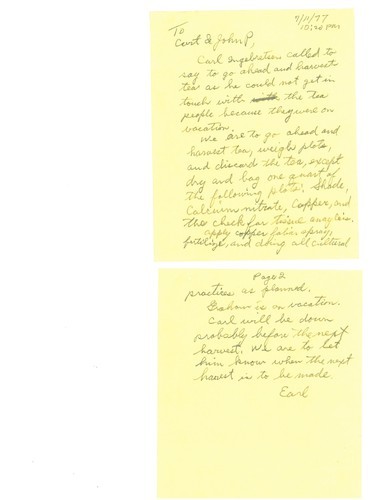 7/11/77
10:20 PM
To
Curt & John P,
Carl Ingebretsen called to
say to go ahead and harvest
tea as he could not get in
touch with the tea
people because they were on
vacation.
We are to go ahead and
harvest tea, weigh plots,
and discard the tea, except
dry and bag one quart of
the following plots: Shade,
Calcium nitrate, Copper, and
the check for tissue analysis.
apply copper foliar spray,
fertilize, and doing all cultural
Page 2
practices as planned.
is on vacation.
Carl will be down
probably before the next
harvest. We are to let
him know when the next
harvest is to be made.
Earl